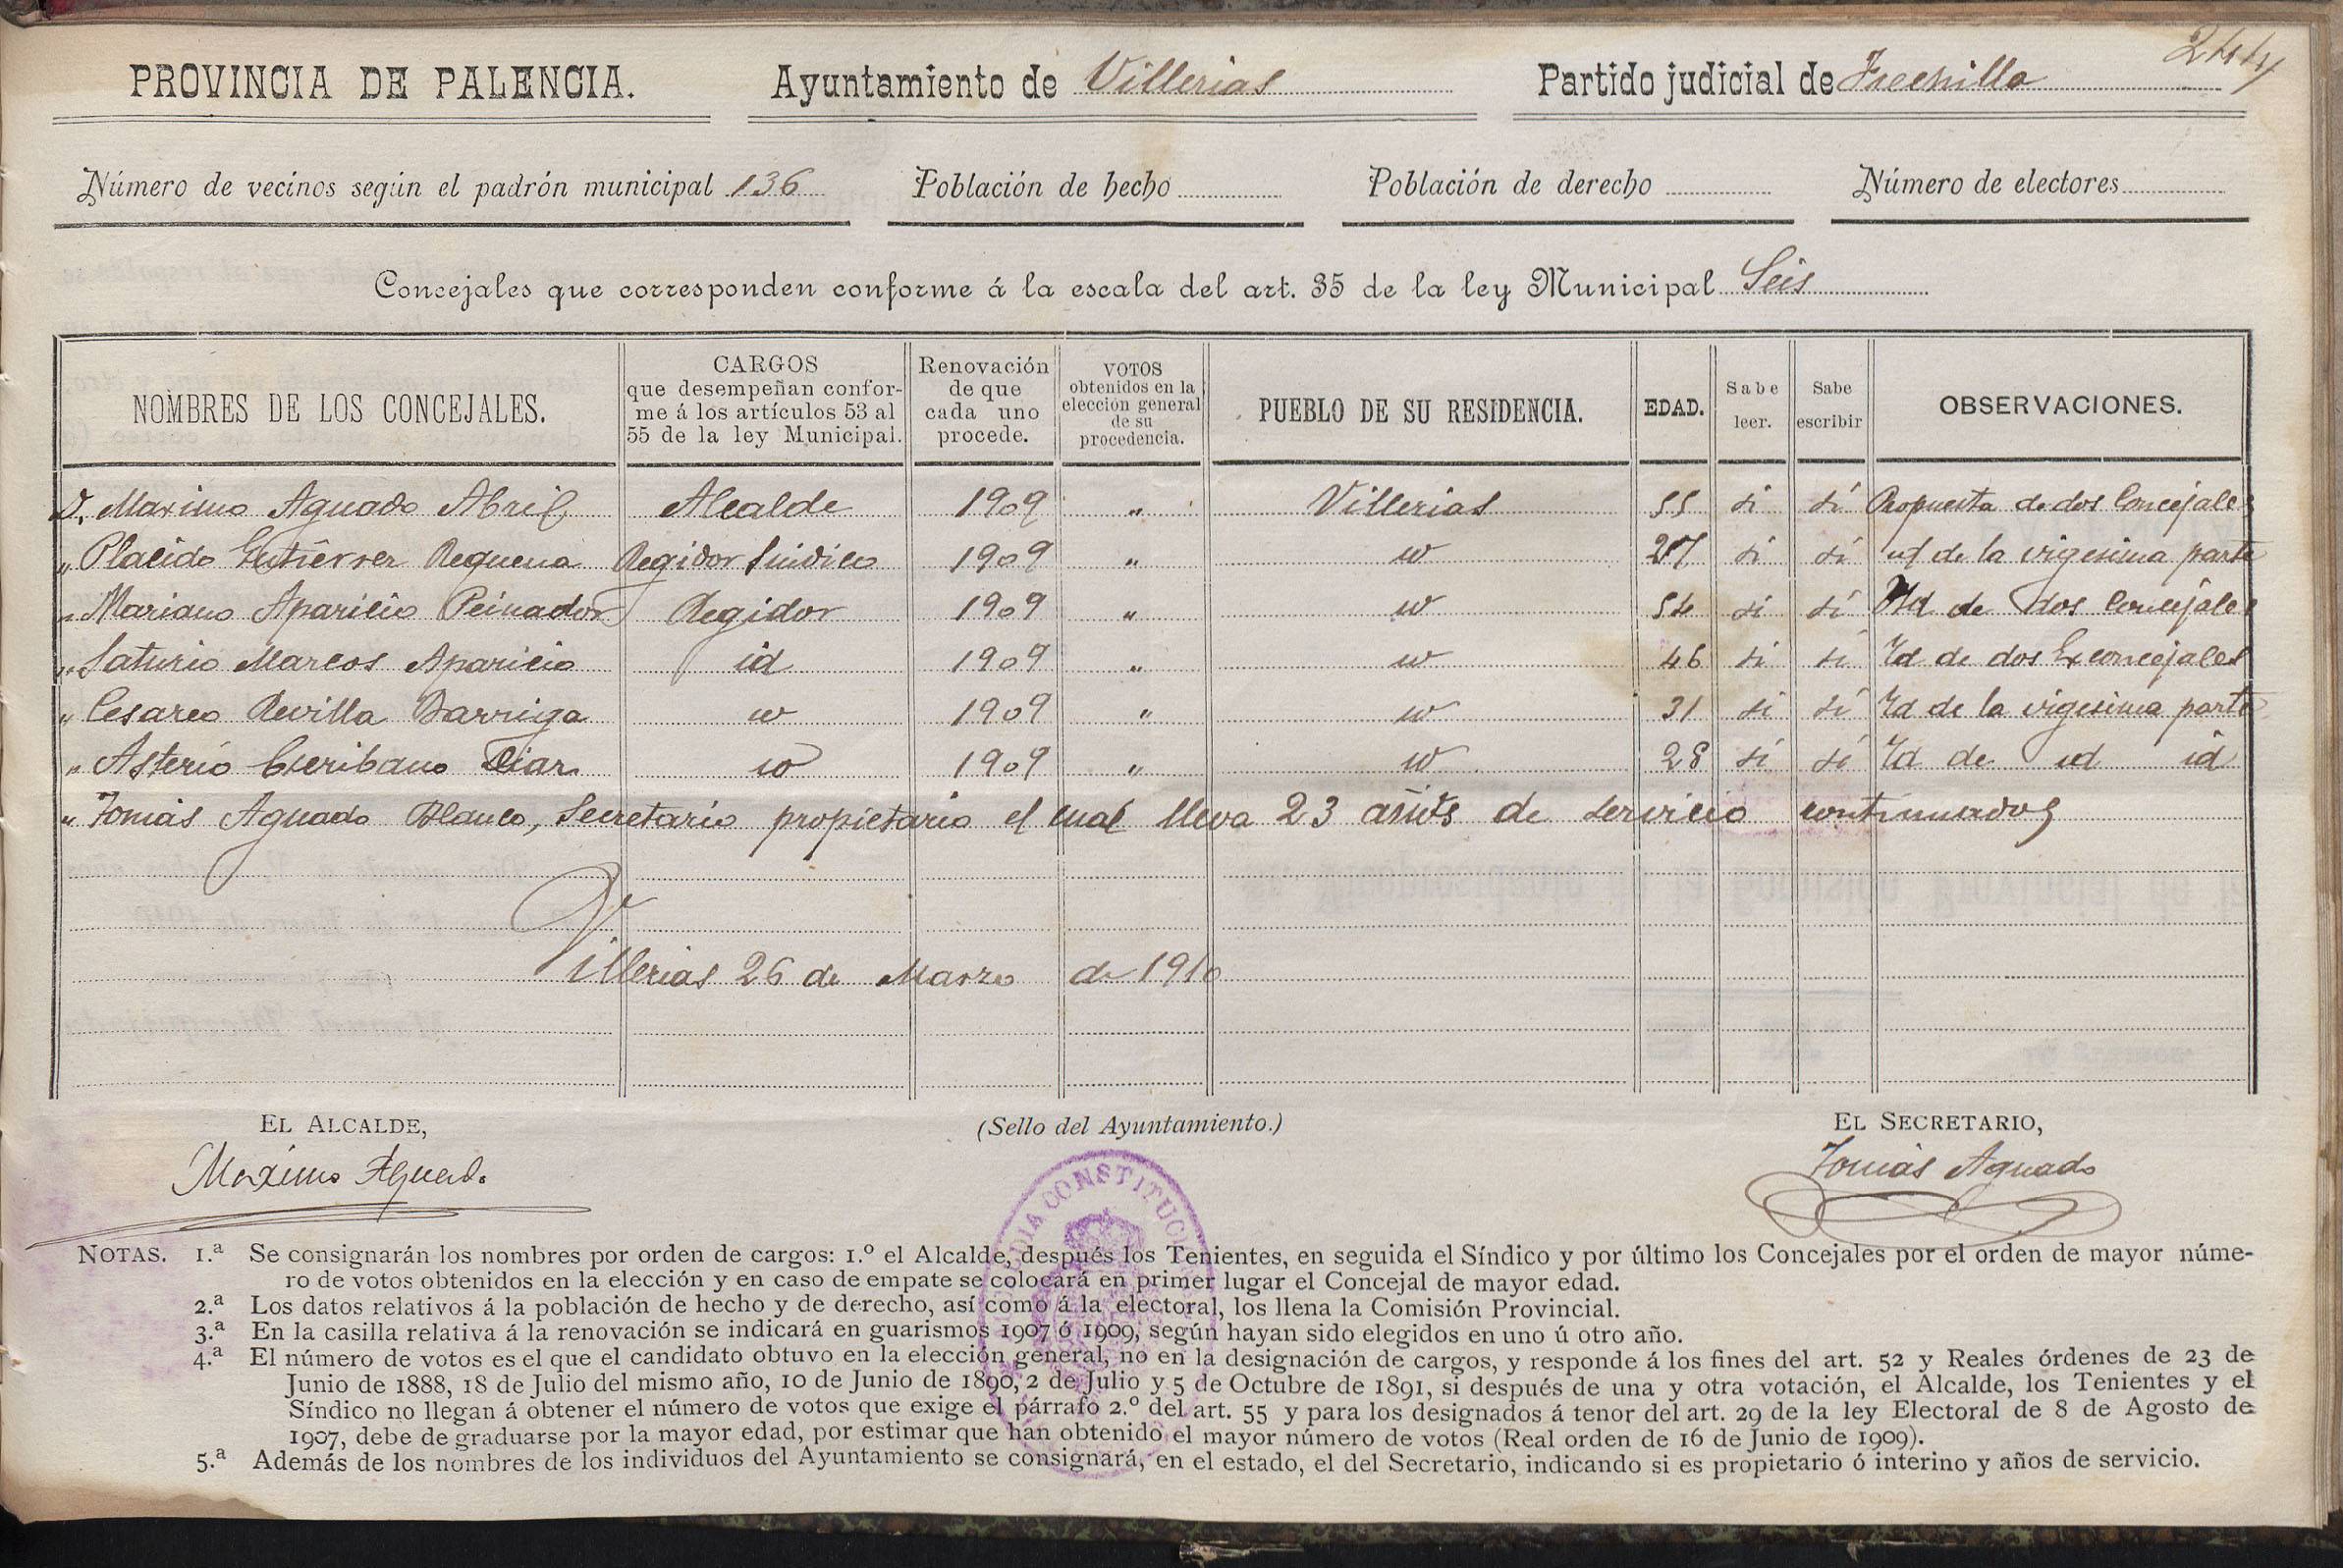 244
PROVINCIA DE PALENCIA. Ayuntamiento de Villerias Partido judicial de Frechilla
Número de vecinos según el padrón municipal 136 Población de hecho Población de derecho Número de electores
Concejales que corresponden conforme á la escala del art. 35 de la ley Municipal Seis
NOMBRES DE LOS CONCEJALES. CARGOS que desempeñan conforme á los artículos 53 al 55 de la ley Municipal. Renovación de que cada uno procede. VOTOS obtenidos en la elección general de su procedencia. PUEBLO DE SU RESIDENCIA. EDAD. Sabe leer. Sabe escribir OBSERVACIONES.
D. Maximo Aguado Abril Alcalde 1909 " Villerias 55 si si Propuesta de dos Concejales
" Placido Gutierrez Requena Regidor Sindico 1909 " id 27 si si id de la vigesima parte
" Mariano Aparicio Peinador Regidor 1909 " id 54 si si Id de dos Concejales
" Saturio Marcos Aparicio id 1909 " id 46 si si Id de dos Exconcejales
" Cesareo Revilla Barriga id 1909 " id 31 si si Id de la vigesima parte
" Asterio Escribano Diaz id 1909 " id 28 si si Id de id id
" Tomás Aguado Blanco, Secretario propietario el cual lleva 23 años de servicio continuados
Villerias 26 de Marzo de 1910
EL ALCALDE, (Sello del Ayuntamiento.) EL SECRETARIO,
Maximo Aguado Tomás Aguado
NOTAS. 1.ª Se consignarán los nombres por orden de cargos: 1.º el Alcalde, después los Tenientes, en seguida el Síndico y por último los Concejales por el orden de mayor núme-
ro de votos obtenidos en la elección y en caso de empate se colocará en primer lugar el Concejal de mayor edad.
2.ª Los datos relativos á la población de hecho y de derecho, así como á la electoral, los llena la Comisión Provincial.
3.ª En la casilla relativa á la renovación se indicará en guarismos 1907 ó 1909, según hayan sido elegidos en uno ú otro año.
4.ª El número de votos es el que el candidato obtuvo en la elección general, no en la designación de cargos, y responde á los fines del art. 52 y Reales órdenes de 23 de
Junio de 1888, 18 de Julio del mismo año, 10 de Junio de 1890, 2 de Julio y 5 de Octubre de 1891, si después de una y otra votación, el Alcalde, los Tenientes y el
Síndico no llegan á obtener el número de votos que exige el párrafo 2.º del art. 55 y para los designados á tenor del art. 29 de la ley Electoral de 8 de Agosto de
1907, debe de graduarse por la mayor edad, por estimar que han obtenido el mayor número de votos (Real orden de 16 de Junio de 1909).
5.ª Además de los nombres de los individuos del Ayuntamiento se consignará, en el estado, el del Secretario, indicando si es propietario ó interino y años de servicio.